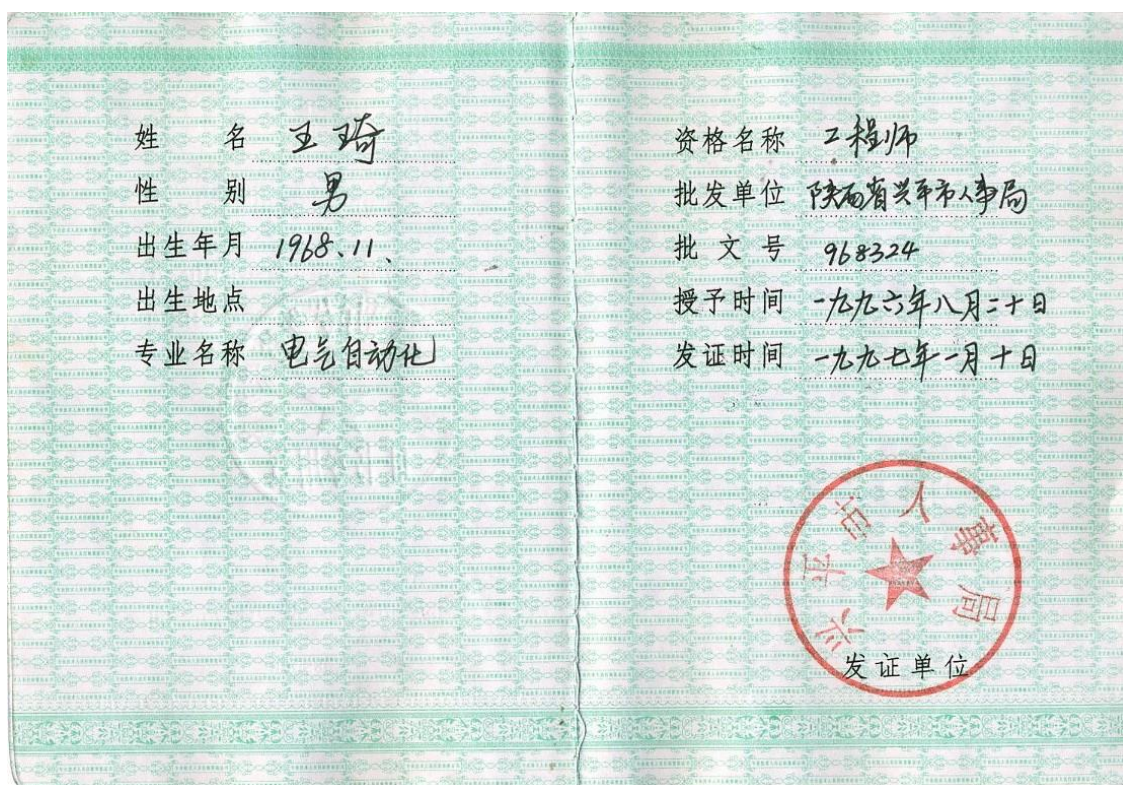 姓 名 王琦
性 别 男
出生年月 1968.11.
出生地点
专业名称 电气自动化
资格名称 工程师
批发单位 陕西省兴平市人事局
批文号 968324
授予时间 一九九六年八月二十日
发证时间 一九九七年一月十日
兴平市人事局
发证单位